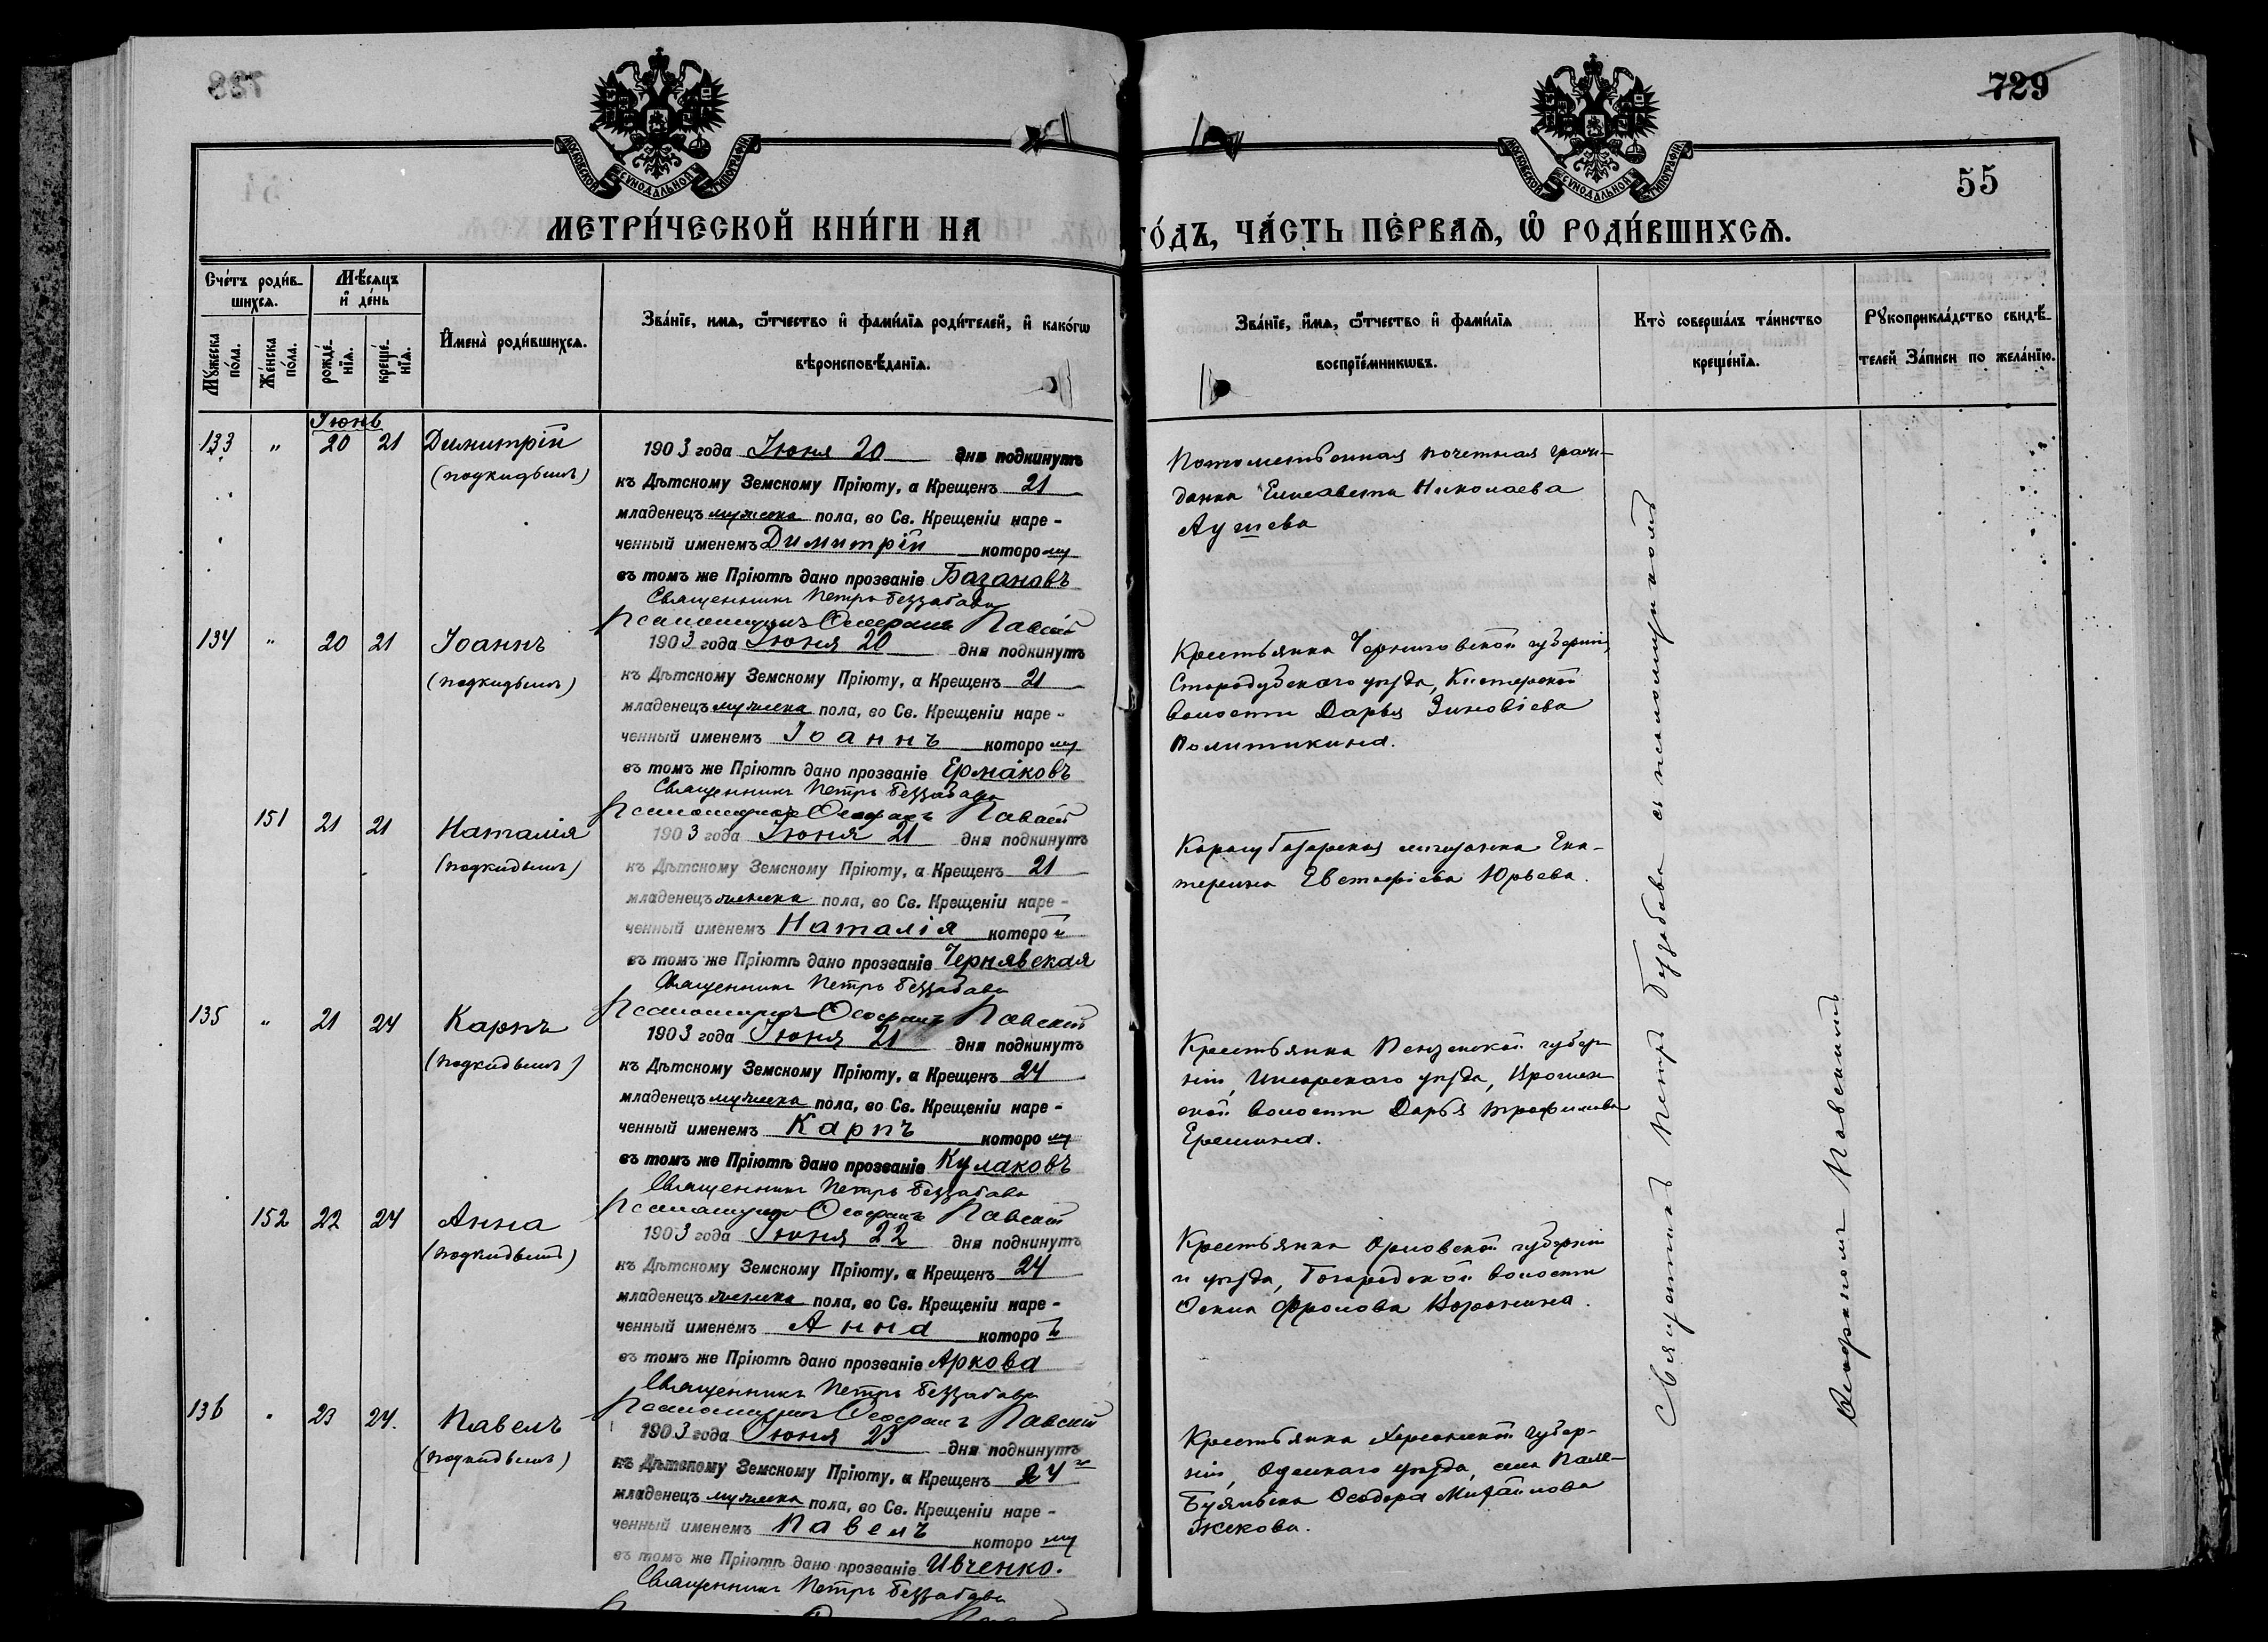 728
729
55
МОСКОВСКОЙ СѴНОДАЛЬНОЙ ТИПОГРАФІИ
МОСКОВСКОЙ СѴНОДАЛЬНОЙ ТИПОГРАФІИ
МЕТРИ́ЧЕСКОЙ КНИ́ГИ НА ГО́ДЪ, ЧА́СТЬ ПЕ́РВАѦ, Ѽ РОДИ́ВШИХСѦ.
Сче́тъ роди́в-
шихсѧ.
Мꙋжеска по́ла.
Же́нска по́ла.
Мѣ́сѧцъ
и҆ де́нь
рожде́-нїѧ.
креще́-нїѧ.
И҆мена̀ роди́вшихсѧ.
Зва́нїе, имѧ, ѻ҆́тчество и҆ фами́лїѧ роди́телей, и҆ како́гѡ
вѣроисповѣ́данїѧ.
Зва́нїе, и҆́мѧ, ѻ҆́тчество и҆ фами́лїѧ
воспрїе́мникѡвъ.
Кто̀ соверша́лъ та́инство
креще́нїѧ.
Рꙋкоприкла́дство свидѣ́-
телей За́писи по жела́нїю.
Іюнь
133 " 20 21 Димитрій
(подкидышъ)
1903 года Іюня 20 дня подкинутъ
къ Дѣтскому Земскому Пріюту, а Крещенъ 21
младенецъ мужска пола, во Св. Крещеніи наре-
ченный именемъ Димитрій которому
въ томъ же Пріютѣ дано прозваніе Базановъ
Священникъ Петръ Беззабава
Псаломщикъ Ѳеофанъ Павскій
Потомственная почетная граж-
данка Елисавета Николаева
Аушева
134 " 20 21 Іоаннъ
(подкидышъ)
1903 года Іюня 20 дня подкинутъ
къ Дѣтскому Земскому Пріюту, а Крещенъ 21
младенецъ мужска пола, во Св. Крещеніи наре-
ченный именемъ Іоаннъ которому
въ томъ же Пріютѣ дано прозваніе Ермаковъ
Священникъ Петръ Беззабава
Псаломщикъ Ѳеофанъ Павскій
Крестьянка Черниговской губерніи,
Стародубскаго уѣзда, Кистерской
волости Дарья Зиновіева
Политикина.
151 21 21 Наталія
(подкидышъ)
1903 года Іюня 21 дня подкинутъ
къ Дѣтскому Земскому Пріюту, а Крещенъ 21
младенецъ женска пола, во Св. Крещеніи наре-
ченный именемъ Наталія которой
въ томъ же Пріютѣ дано прозваніе Чернявская
Священникъ Петръ Беззабава
Псаломщикъ Ѳеофанъ Павскій
Карасубазарская мещанка Ека-
терина Евстафіева Юрьева.
135 " 21 24 Карпъ
(подкидышъ)
1903 года Іюня 21 дня подкинутъ
къ Дѣтскому Земскому Пріюту, а Крещенъ 24
младенецъ мужска пола, во Св. Крещеніи наре-
ченный именемъ Карпъ которому
въ томъ же Пріютѣ дано прозваніе Кулаковъ
Священникъ Петръ Беззабава
Псаломщикъ Ѳеофанъ Павскій
Крестьянка Пензенской губер-
ніи, Инсарскаго уѣзда,
ской волости Дарья Трофимова
Ерешина.
152 22 24 Анна
(подкидышъ)
1903 года Іюня 22 дня подкинутъ
къ Дѣтскому Земскому Пріюту, а Крещенъ 24
младенецъ женска пола, во Св. Крещеніи наре-
ченный именемъ Анна которой
въ томъ же Пріютѣ дано прозваніе Аркова
Священникъ Петръ Беззабава
Псаломщикъ Ѳеофанъ Павскій
Крестьянка Орловской губерніи
и уѣзда, волости
Фролова Воронина.
136 " 23 24. Павелъ
(подкидышъ)
1903 года Іюня 23 дня подкинутъ
къ Дѣтскому Земскому Пріюту, а Крещенъ 24
младенецъ мужска пола, во Св. Крещеніи наре-
ченный именемъ Павелъ которому
въ томъ же Пріютѣ дано прозваніе Ивченко.
Священникъ Петръ Беззабава
Крестьянка Херсонской губер-
ніи, Одесскаго уѣзда, села
Ѳеодора Михайлова
Священникъ Петръ Беззабава съ псаломщикомъ
Ѳеофаномъ Павскимъ